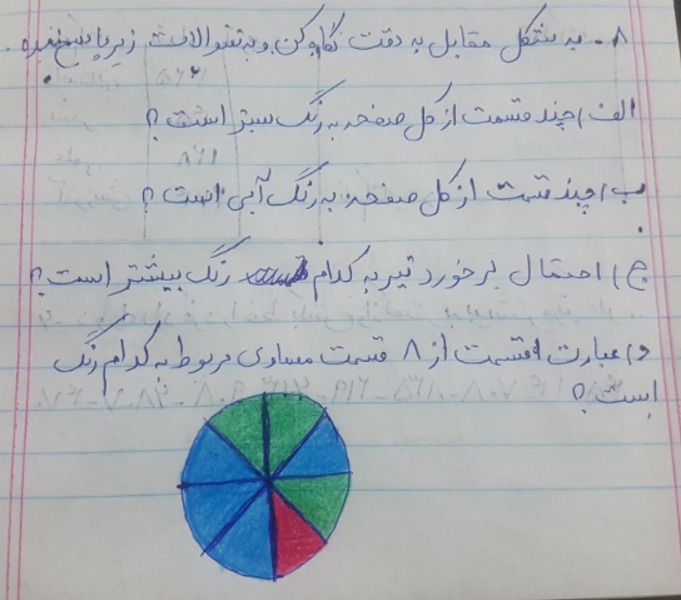 ۸- به شکل مقابل به دقت نگاه کن و به سوالات زیر پاسخ بده.
الف) چند قسمت از کل صفحه به رنگ سبز است؟
ب) چند قسمت از کل صفحه به رنگ آبی است؟
ج) احتمال برخورد تیر به کدام رنگ بیشتر است؟
د) عبارت ۱ قسمت از ۸ قسمت مساوی مربوط به کدام رنگ
است؟